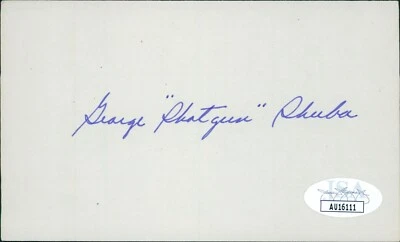 George "Shotgun" Shuba
JSA
AU16111